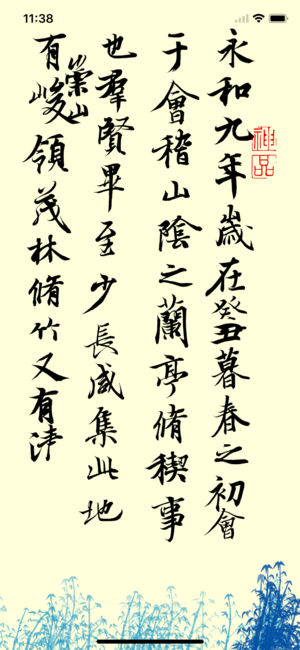 11:38
永和九年歲在癸丑暮春之初會
于會稽山陰之蘭亭脩稧事
也羣賢畢至少長咸集此地
有崇山峻領茂林脩竹又有清
神品